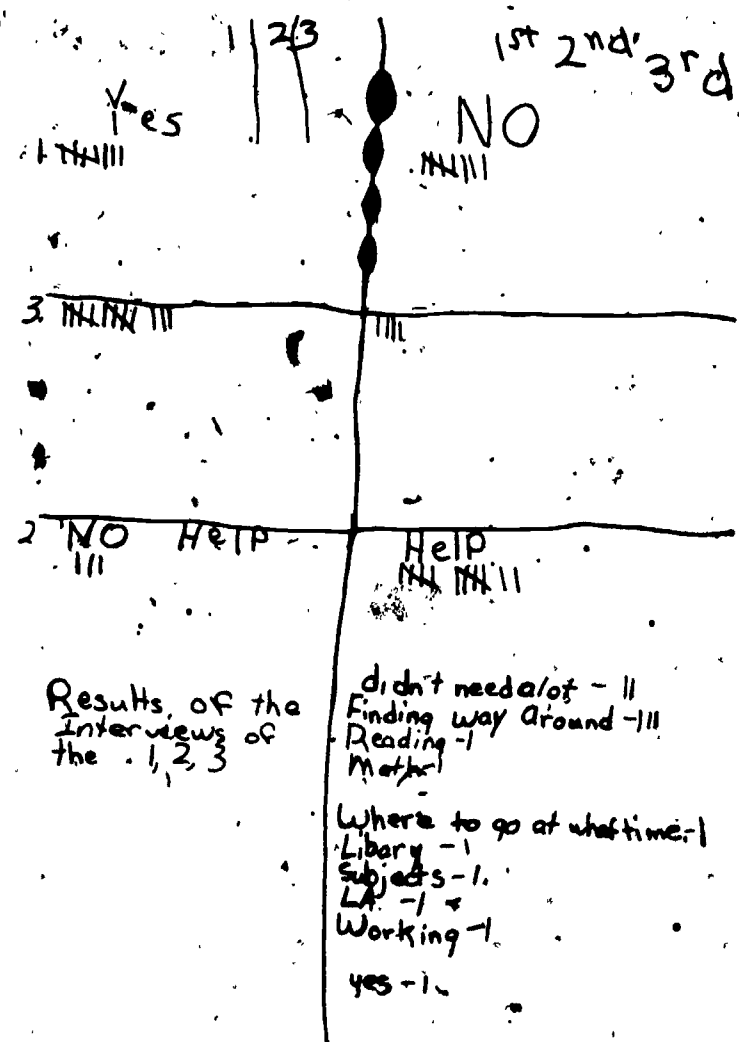 1 2 3
1st 2nd 3rd
Yes
NO
1
3.
2 NO Help
Help
Results of the
Interviews of
the 1, 2, 3
didn't need alot - II
Finding way around - III
Reading - I
Math - I
Where to go at what time - I
Libary - I
Subjects - I.
LA - I
Working - I
yes - I